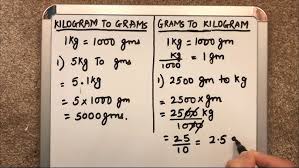 KILOGRAM TO GRAMS
1kg = 1000 gms
1) 5kg to gms
= 5.1kg
= 5 x 1000 gm
= 5000 gms.
GRAMS TO KILOGRAM
1kg = 1000 gm
kg/1000 = 1gm
1) 2500 gm to kg
= 2500 x gm
= 2500 kg/1000
= 25/10 = 2.5